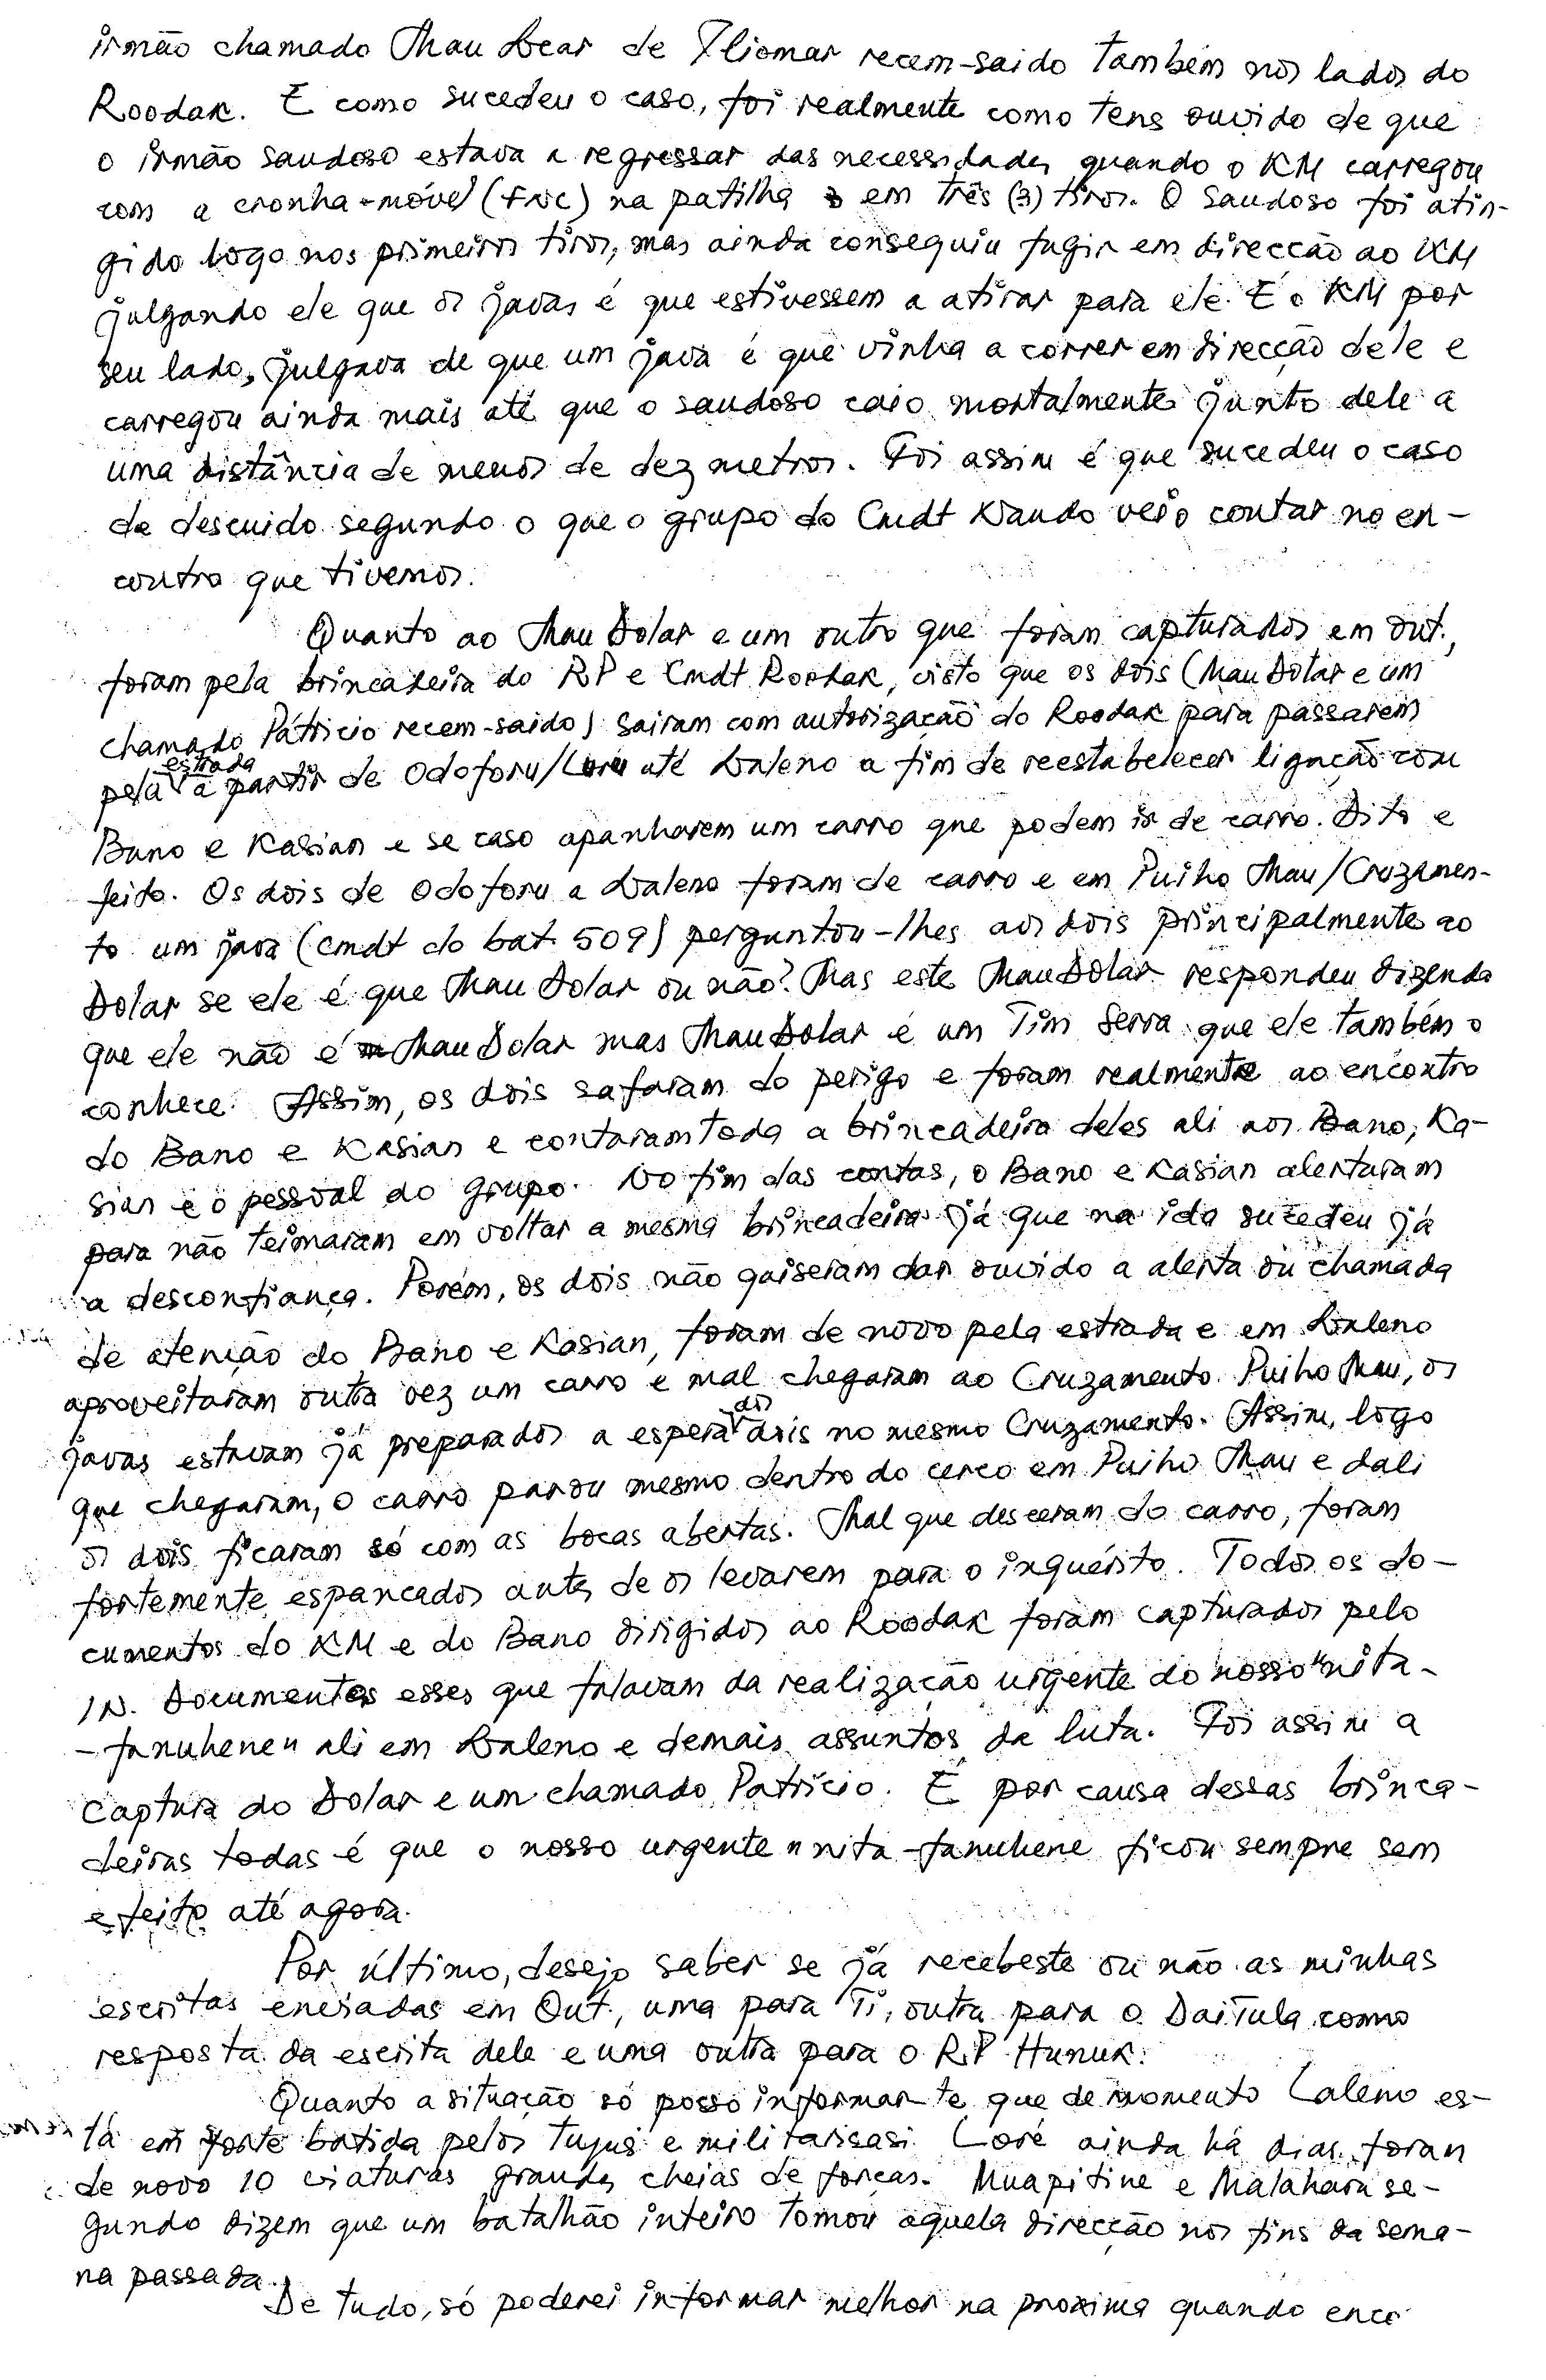 irmão chamado Mau Lear de Iliomar recem-saido também nos lados do
Roodak. E como sucedeu o caso, foi realmente como tens ouvido de que
o irmão saudoso estava a regressar das necessidades quando o KM carregou
com a cronha-móvel (FNC) na patilha em três (3) tiros. O saudoso foi atin-
gido logo nos primeiros tiros, mas ainda conseguiu fugir em direcção ao KM
julgando ele que os javas é que estivessem a atirar para ele. E o KM por
seu lado, julgava de que um java é que vinha a correr em direcção dele e
carregou ainda mais até que o saudoso caio mortalmente junto dele a
uma distância de menos de dez metros. Foi assim é que sucedeu o caso
de descuido segundo o que o grupo do Cmdt Nando veio contar no en-
contro que tivemos.
Quanto ao Mau Dolar e um outro que foram capturados em Out.,
foram pela brincadeira do RP e Cmdt Roodak, visto que os dois (Mau Dolar e um
chamado Pátricio recem-saido) sairam com autorização do Roodak para passarem
pela estrada a partir de Odofuru/Luru até Laleno a fim de reestabelecer ligação com
Bano e Kasian e se caso apanharem um carro que podem ir de carro. Dito e
feito. Os dois de Odofuru a Laleno foram de carro e em Puiho Mau/Cruzamen-
to um java (cmdt do bat. 509) perguntou-lhes aos dois principalmente ao
Dolar se ele é que Mau Dolar ou não? Mas este Mau Dolar respondeu dizenda
que ele não é Mau Dolar mas Mau Dolar é um Tim Serra que ele também o
conhece. Assim, os dois safaram do perigo e foram realmente ao encontro
do Bano e Kasian e contaram toda a brincadeira deles ali aos Bano, Ka-
sian e o pessoal do grupo. No fim das contas, o Bano e Kasian alertaram
para não teimaram em voltar a mesma brincadeira já que na ida sucedeu já
a desconfiança. Porém, os dois não quiseram dar ouvido a alerta ou chamada
de atenção do Bano e Kasian, foram de novo pela estrada e em Laleno
aproveitaram outra vez um carro e mal chegaram ao Cruzamento Puiho Mau, os
javas estavam já preparados a espera dos dois no mesmo Cruzamento. Assim, logo
que chegaram, o carro parou mesmo dentro do cerco em Puiho Mau e dali
os dois ficaram só com as bocas abertas. Mal que desceram do carro, foram
fortemente espancados antes de os levarem para o inquérito. Todos os do-
cumentos do KM e do Bano dirigidos ao Roodak foram capturados pelo
IN. Documentos esses que falavam da realização urgente do nosso "nita-
-fanuhene" ali em Laleno e demais assuntos da luta. Foi assim a
captura do Dolar e um chamado Patrício. E por causa dessas brinca-
deiras todas é que o nosso urgente "nita-fanuhene ficou sempre sem
efeito até agora.
Por último, desejo saber se já recebeste ou não as minhas
escritas enviadas em Out., uma para Ti, outra para o DaiTula como
resposta da escrita dele e uma outra para o RP Hunuk.
Quanto a situação só posso informar-te que de momento Laleno es-
tá em forte batida pelos tujus e militarisasi. Loré ainda há dias foran
de novo 10 viaturas grandes cheias de forças. Muapitine e Malahara se-
gundo dizem que um batalhão inteiro tomou aquela direcção nos fins da sema-
na passada.
De tudo, só poderei informar melhor na proxima quando enco